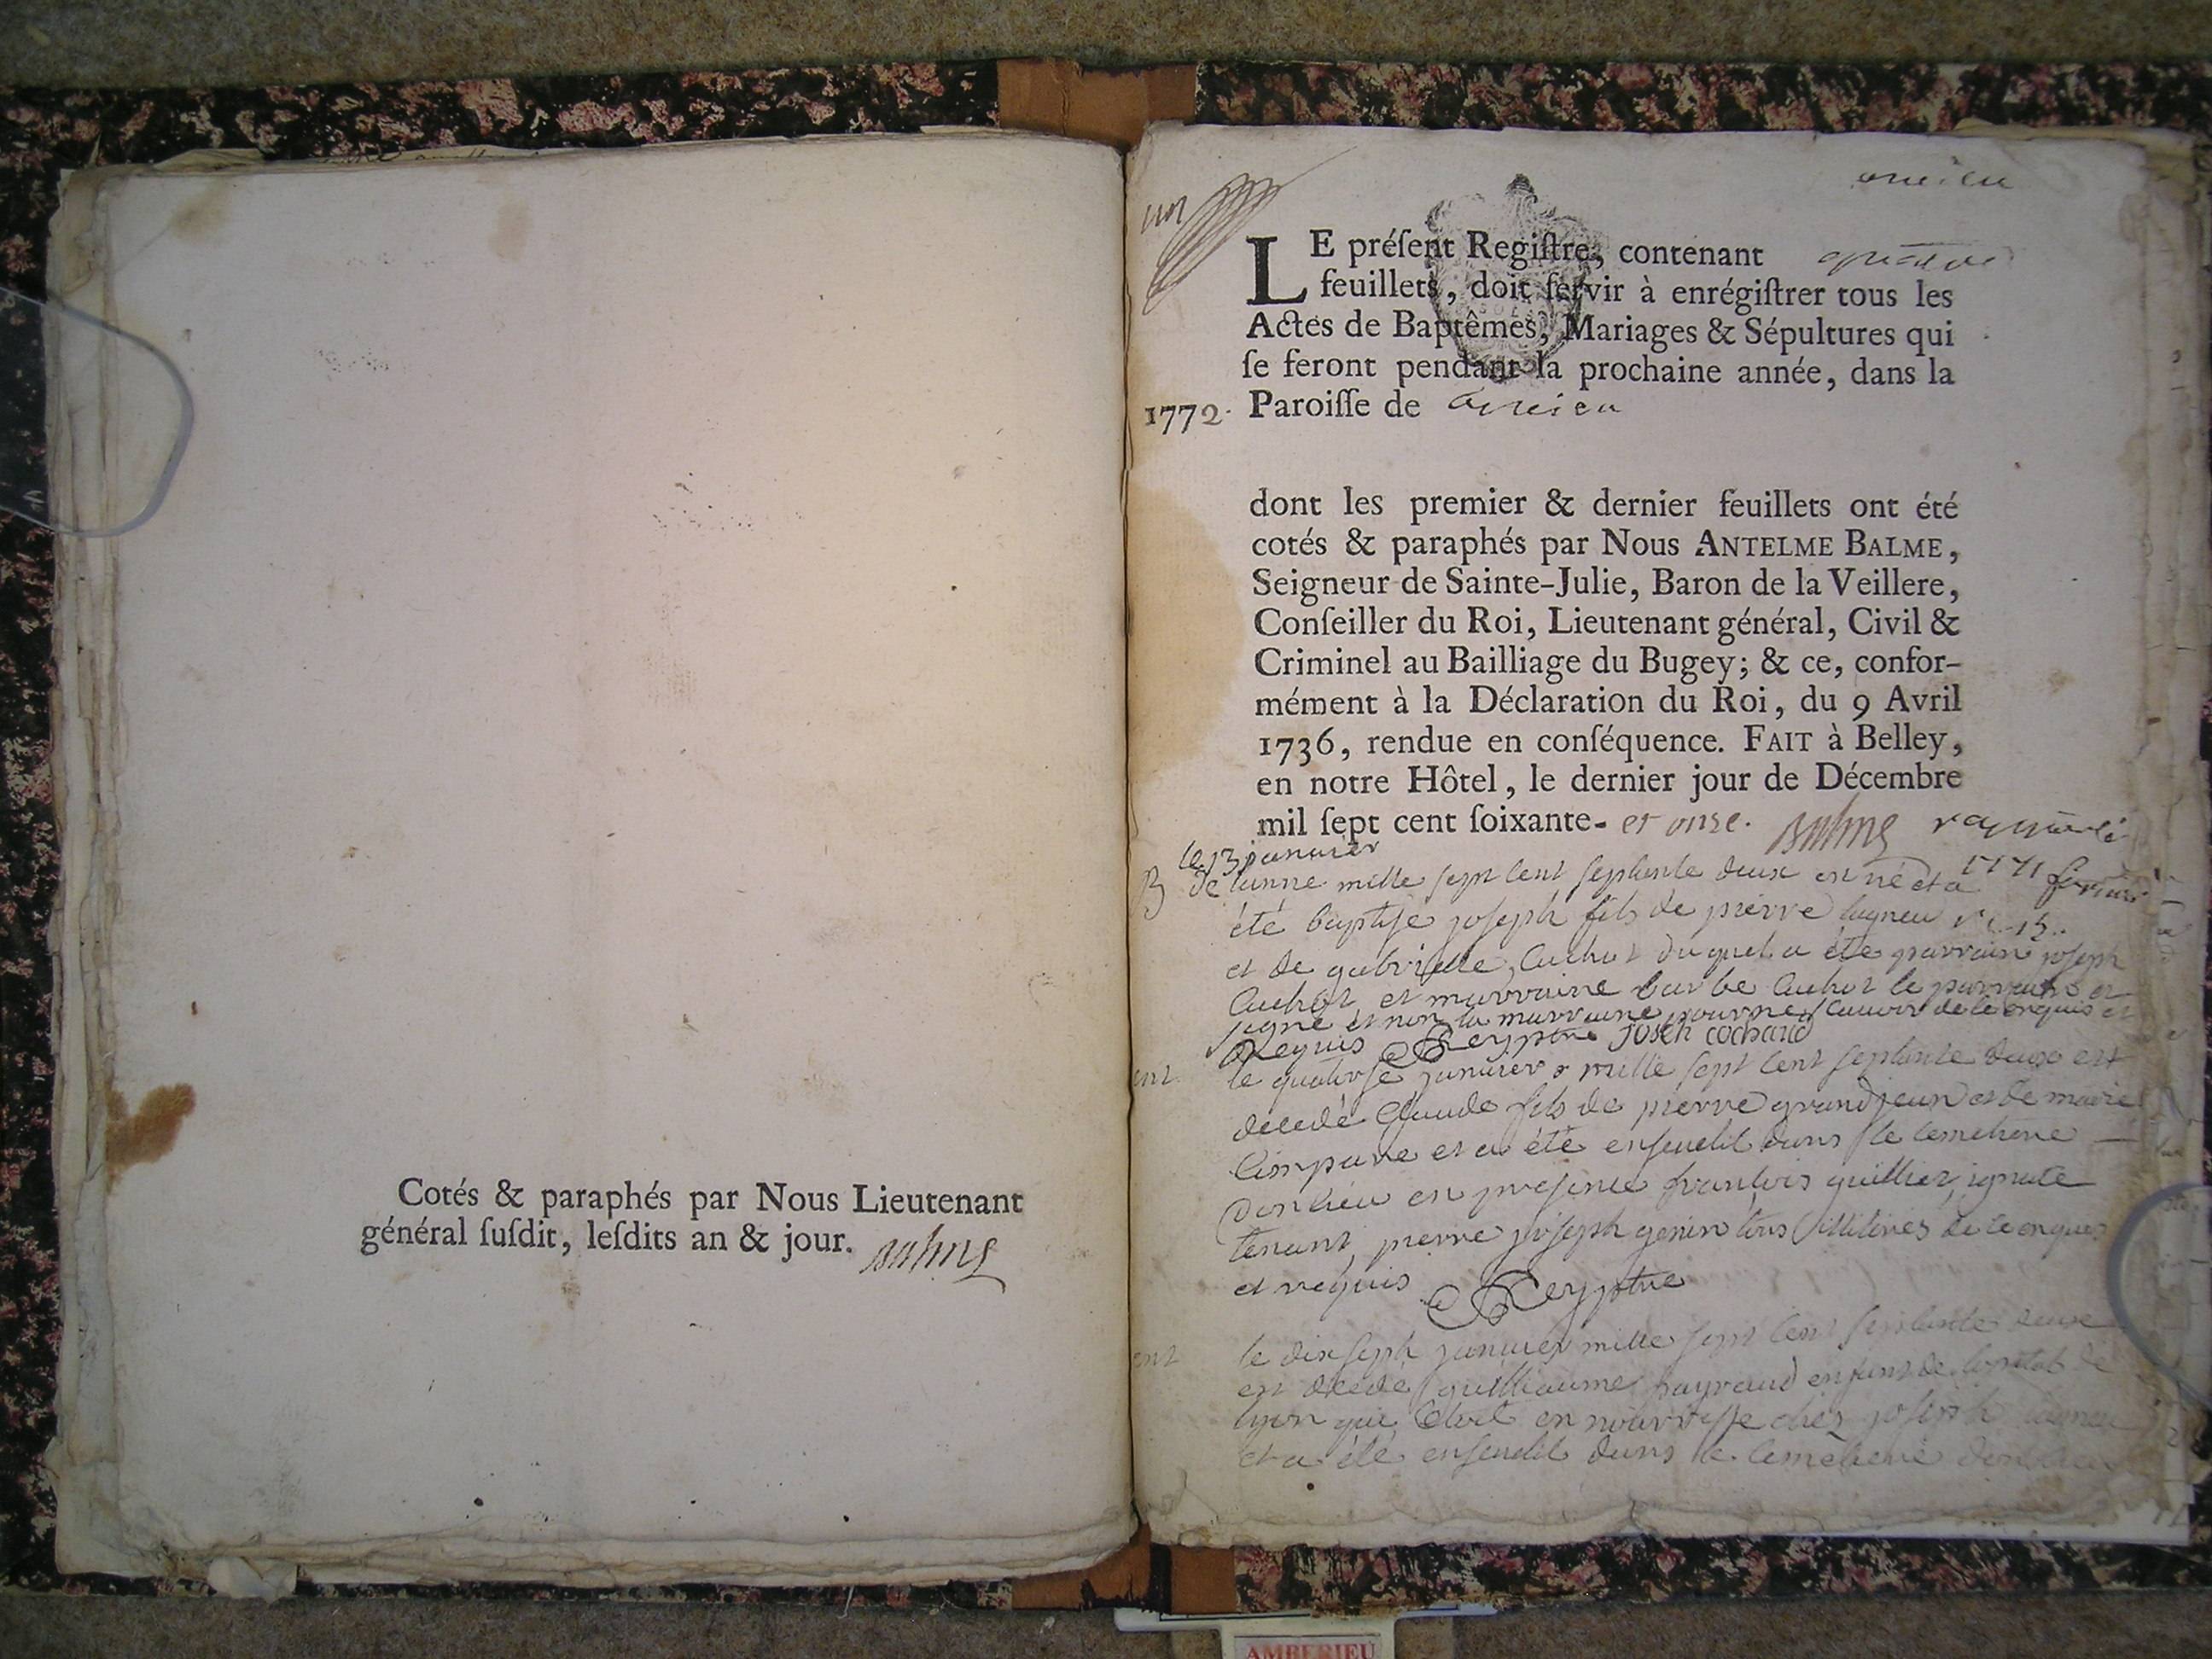 Cotés & paraphés par Nous Lieutenant
général ſuſdit, leſdits an & jour.
un
LE préſent Regiſtre, contenant quatre
feuillets, doit ſervir à enrégiſtrer tous les
Actes de Baptêmes, Mariages & Sépultures qui
ſe feront pendant la prochaine année, dans la
1772. Paroiſſe de
dont les premier & dernier feuillets ont été
cotés & paraphés par Nous ANTELME BALME,
Seigneur de Sainte-Julie, Baron de la Veillere,
Conſeiller du Roi, Lieutenant général, Civil &
Criminel au Bailliage du Bugey; & ce, confor-
mément à la Déclaration du Roi, du 9 Avril
1736, rendue en conſéquence. FAIT à Belley,
en notre Hôtel, le dernier jour de Décembre
mil ſept cent ſoixante- et onze.
le 13 janvier
B de lanne mille sept cent septante deux est né et a
été baptisé joseph fils de pierre lagneu
et de gabrielle Cuchot duquel a été parrain joseph
Cuchot et marraine barbe Cuchot le parrain a
signe et non la marraine pour ne scavoir de ce enquis et
Requis Reyptre JOSEH COCHARD
ent le quatorse janvier mille sept cent septante deux est
decedé Claude fils de pierre grandjean et de marie
et a été enseveli dans le cemetiere
en presence francois quillier ignace
tenant pierre joseph genin tous illiteres de ce enquis
et requis Reyptre
ent le dix sept janvier mille sept cent septante deux
est decedé guilliaume enfant de
lyon qui étoit en nourrisse chez joseph lagneu
et a été enseveli dans le cemetiere
AMBERIEU